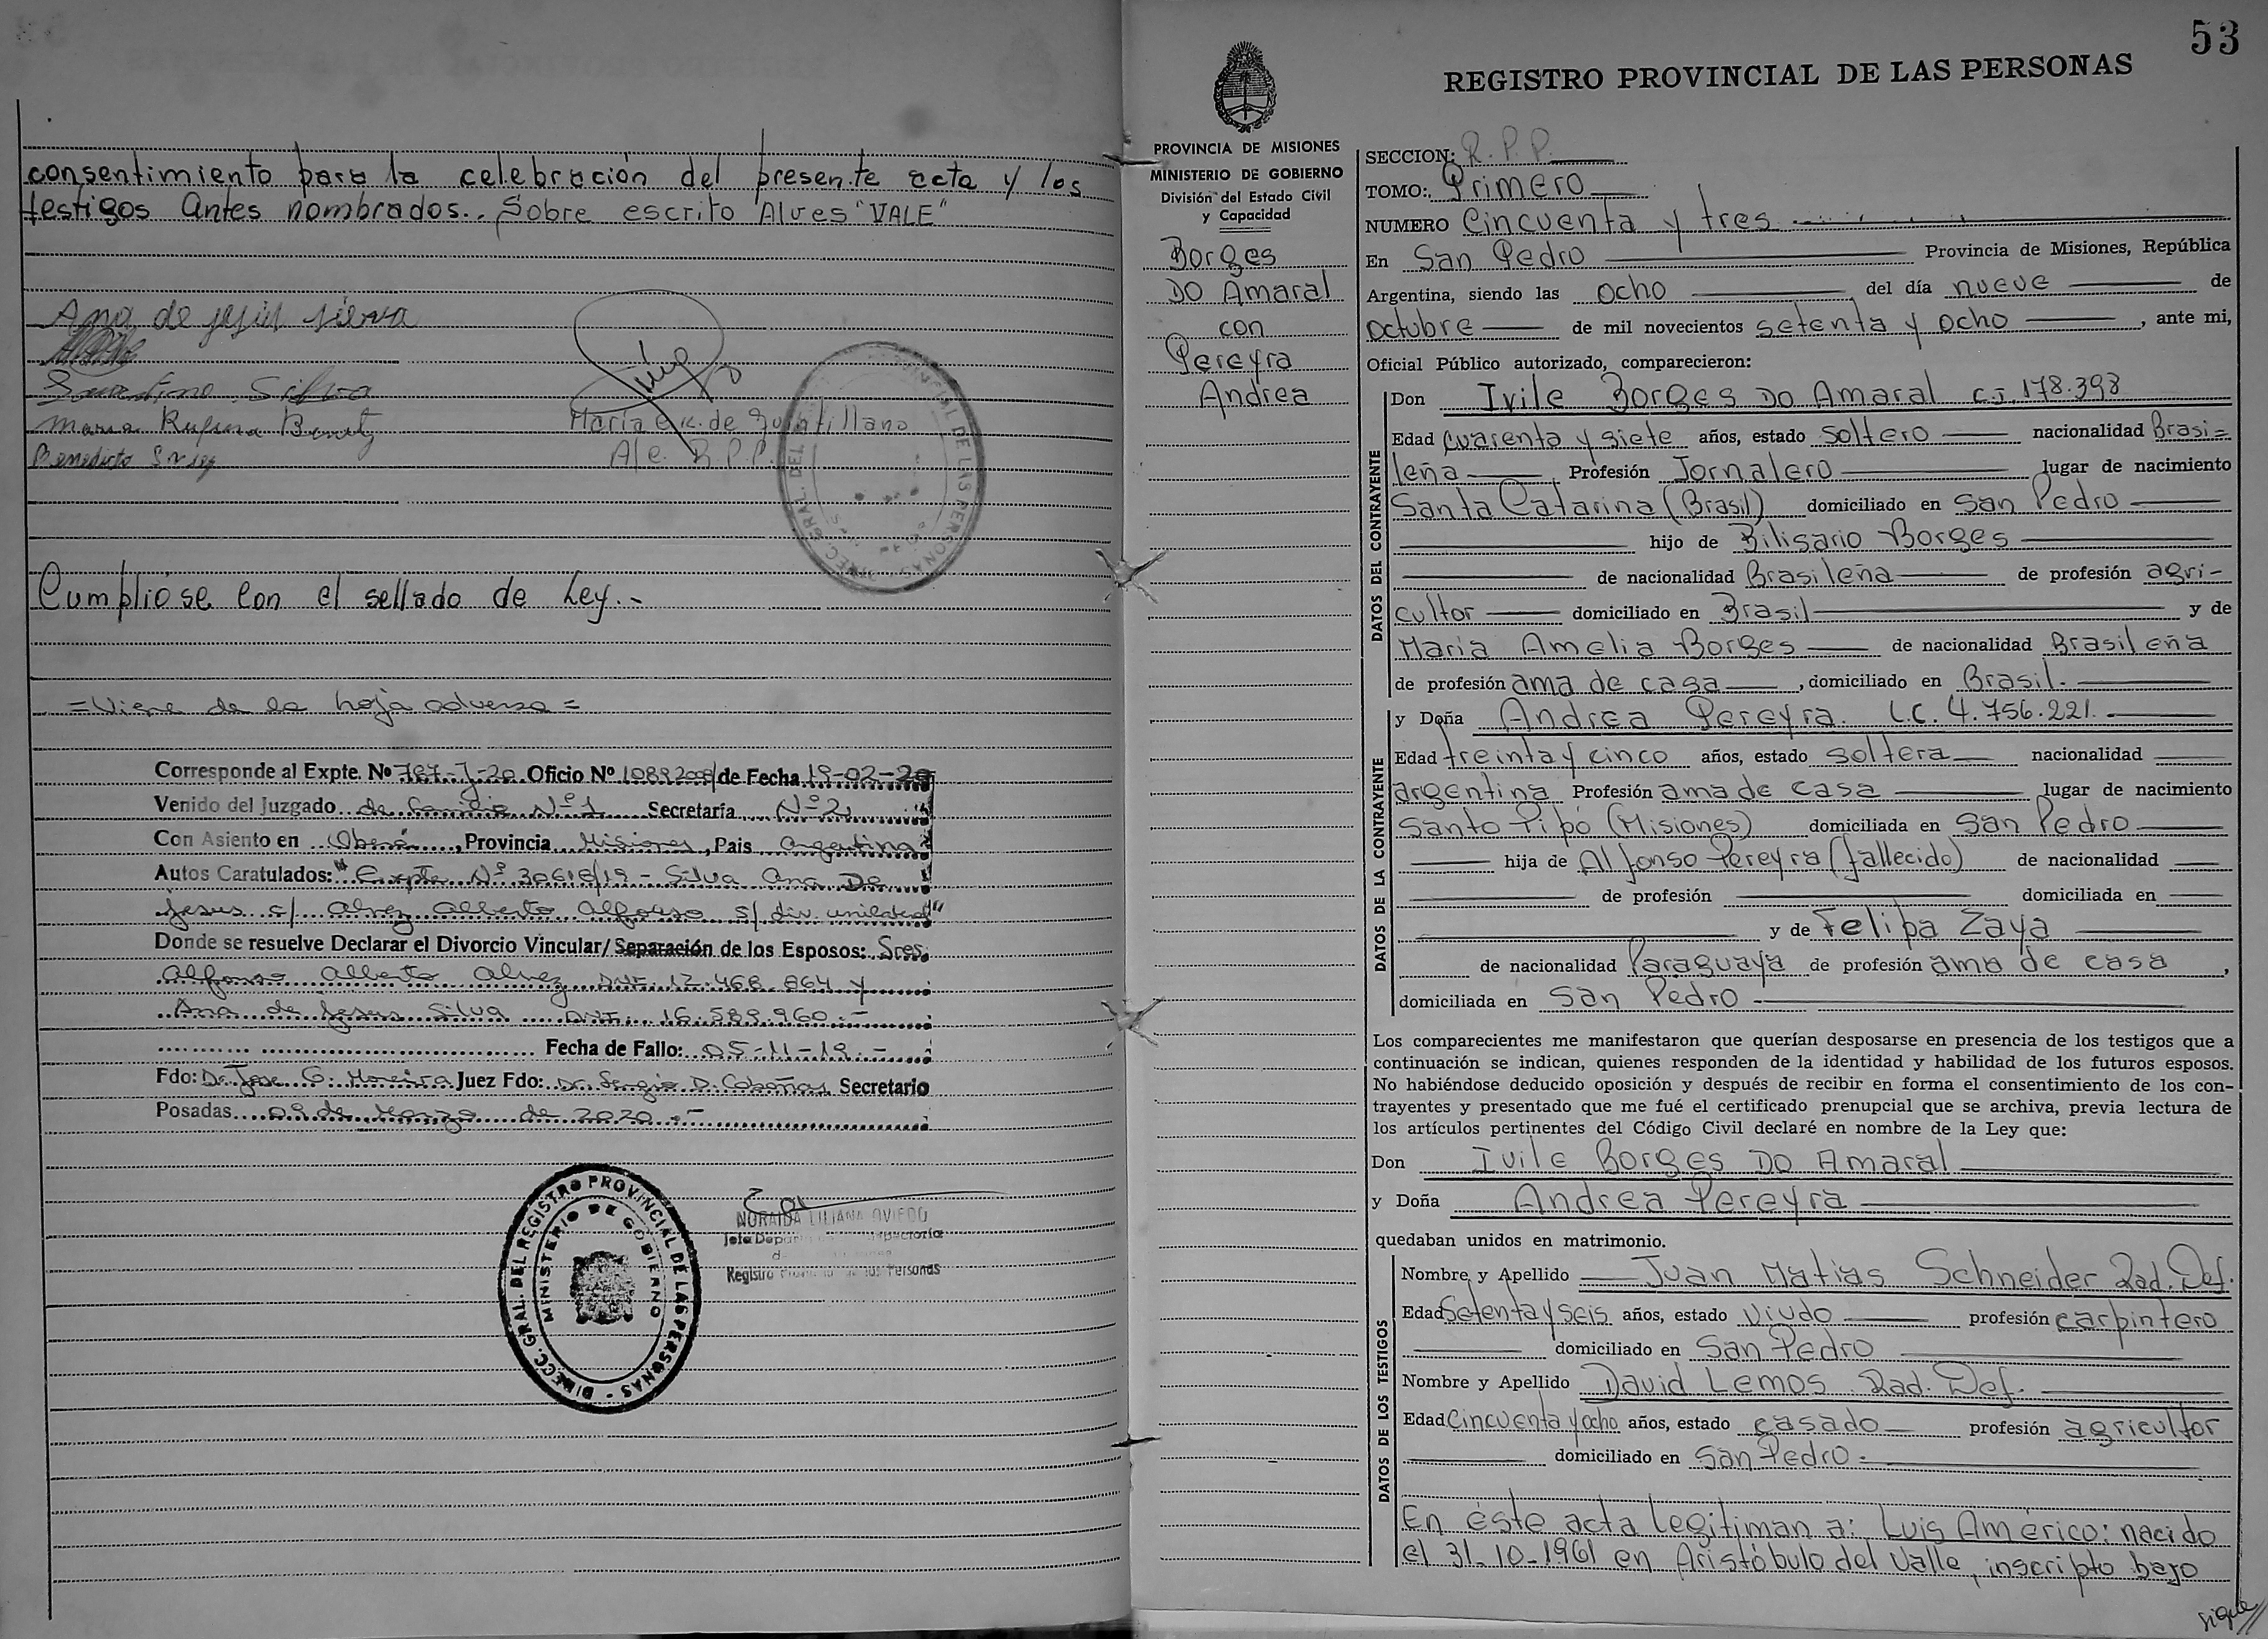 consentimiento para la celebración del presente acta y los
testigos Antes nombrados.. Sobre escrito Alves "VALE"
Ana de jesus silva
Silva
Maria Rufina
Benedicto
Maria de Quintillano
A/c. R.P.P.
Cumplióse con el sellado de Ley.-
=Viene de la hoja adversa=
Corresponde al Expte. Nº 767-J-20 Oficio Nº de Fecha 19-02-20
Venido del Juzgado de Familia Nº 1 Secretaría Nº 2
Con Asiento en Oberá, Provincia Misiones, Pais Argentina
Autos Caratulados: "Expte Nº 30618/19 - Silva Ana De
Jesus c/ Alvez Alberto Alfonso s/ div. unilateral"
Donde se resuelve Declarar el Divorcio Vincular/Separación de los Esposos: Sres.
Alfonso Alberto Alvez DNI. 12.468.864 y
Ana de Jesus Silva DNI. 16.589.960.-
Fecha de Fallo: 05-11-19.-
Fdo: Dr. Jose G. Moreira Juez Fdo: Dr. Sergio D. Cabañas Secretario
Posadas 09 de Marzo de 2020.-
DIRECC. GRAL. DEL REGISTRO PROVINCIAL DE LAS PERSONAS
MINISTERIO DE GOBIERNO
NORAIDA LILIANA OVIEDO
Registro Provincial de las Personas
53
REGISTRO PROVINCIAL DE LAS PERSONAS
PROVINCIA DE MISIONES
MINISTERIO DE GOBIERNO
División del Estado Civil
y Capacidad
Borges
DO Amaral
con
Pereyra
Andrea
SECCION: R.P.P.
TOMO: Primero
NUMERO Cincuenta y tres
En San Pedro Provincia de Misiones, República
Argentina, siendo las ocho del día nueve de
octubre de mil novecientos setenta y ocho, ante mi,
Oficial Público autorizado, comparecieron:
DATOS DEL CONTRAYENTE
Don Ivile Borges DO Amaral C.I. 178.398
Edad cuarenta y siete años, estado soltero nacionalidad Brasi=
leña Profesión Jornalero lugar de nacimiento
Santa Catarina (Brasil) domiciliado en San Pedro
hijo de Bilisario Borges
de nacionalidad Brasileña de profesión agri-
cultor domiciliado en Brasil y de
María Amelia Borges de nacionalidad Brasileña
de profesión ama de casa, domiciliado en Brasil.
DATOS DE LA CONTRAYENTE
y Doña Andrea Pereyra. L.C. 4.756.221.
Edad treinta y cinco años, estado soltera nacionalidad
argentina Profesión ama de casa lugar de nacimiento
Santo Pipó (Misiones) domiciliada en San Pedro
hija de Alfonso Pereyra (fallecido) de nacionalidad
de profesión domiciliada en
y de Felipa Zaya
de nacionalidad Paraguaya de profesión ama de casa,
domiciliada en San Pedro
Los comparecientes me manifestaron que querían desposarse en presencia de los testigos que a
continuación se indican, quienes responden de la identidad y habilidad de los futuros esposos.
No habiéndose deducido oposición y después de recibir en forma el consentimiento de los con-
trayentes y presentado que me fué el certificado prenupcial que se archiva, previa lectura de
los artículos pertinentes del Código Civil declaré en nombre de la Ley que:
Don Ivile Borges DO Amaral
y Doña Andrea Pereyra
quedaban unidos en matrimonio.
DATOS DE LOS TESTIGOS
Nombre y Apellido Juan Matias Schneider Rad. Def.
Edad Setenta y seis años, estado Viudo profesión carpintero
domiciliado en San Pedro
Nombre y Apellido David Lemos Rad. Def.
Edad Cincuenta y ocho años, estado casado profesión agricultor
domiciliado en San Pedro.
En éste acta legitiman a: Luis Américo: nacido
el 31-10-1961 en Aristóbulo del Valle, inscripto bajo
sigue//